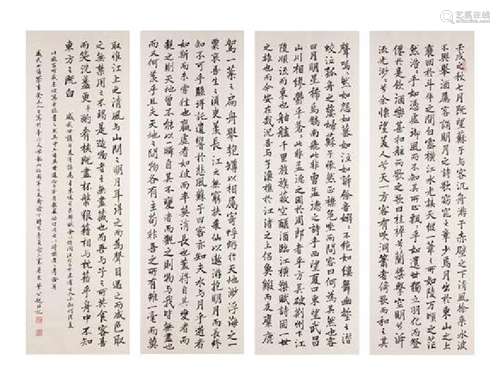 壬戌之秋七月既望蘇子與客泛舟游于赤壁之下清風徐來水波
不興舉酒屬客誦明月之詩歌窈窕之章少焉月出於東山之上
徘徊於斗牛之間白露橫江水光接天縱一葦之所如陵萬頃之茫
然浩浩乎如馮虛御風而不知其所止飄飄乎如遺世獨立羽化而登
僊於是飲酒樂甚扣舷而歌之歌曰桂棹兮蘭槳擊空明兮泝
流光渺渺兮余懷望美人兮天一方客有吹洞簫者倚歌而和之其
聲嗚嗚然如怨如慕如泣如訴餘音嫋嫋不絕如縷舞幽壑之潛
蛟泣孤舟之嫠婦蘇子愀然正襟危坐而問客曰何為其然也客
曰月明星稀烏鵲南飛此非曹孟德之詩乎西望夏口東望武昌
山川相繆鬱乎蒼蒼此非孟德之困於周郎者乎方其破荊州下江
陵順流而東也舳艫千里旌旗蔽空釃酒臨江橫槊賦詩固一世
之雄也而今安在哉況吾與子漁樵於江渚之上侶魚蝦而友麋鹿
駕一葉之扁舟舉匏樽以相屬寄蜉蝣於天地渺浮海之一
粟哀吾生之須臾羨長江之無窮挾飛仙以遨遊抱明月而長終
知不可乎驟得託遺響於悲風蘇子曰客亦知夫水與月乎逝者
如斯而未嘗往也盈虛者如彼而卒莫消長也蓋將自其變者而
觀之則天地曾不能以一瞬自其不變者而觀之則物與我皆無盡也
而又何羨乎且夫天地之間物各有主苟非吾之所有雖一毫而莫
取惟江上之清風與山間之明月耳得之而為聲目遇之而成色取
之無禁用之不竭是造物者之無盡藏也而吾與子之所共食客喜
而笑洗盞更酌肴核既盡杯盤狼籍相與枕藉乎舟中不知
東方之既白